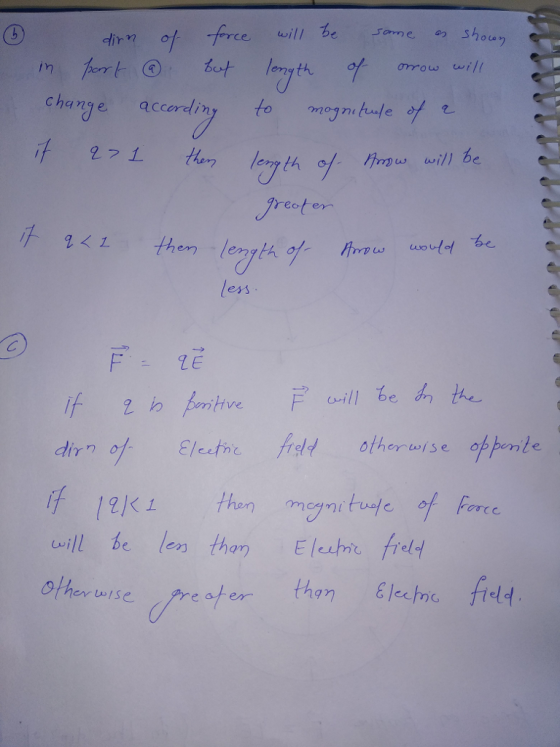 (b) dirn of force will be same as shown
in part (a) but length of arrow will
change according to magnitude of q
if q > 1 then length of Arrow will be
greater
if q < 1 then length of Arrow would be
less.
(c)
F⃗ = qE⃗
if q is positive F⃗ will be in the
dirn of Electric field otherwise opposite
if |q| < 1 then magnitude of Force
will be less than Electric field
Otherwise greater than Electric field.